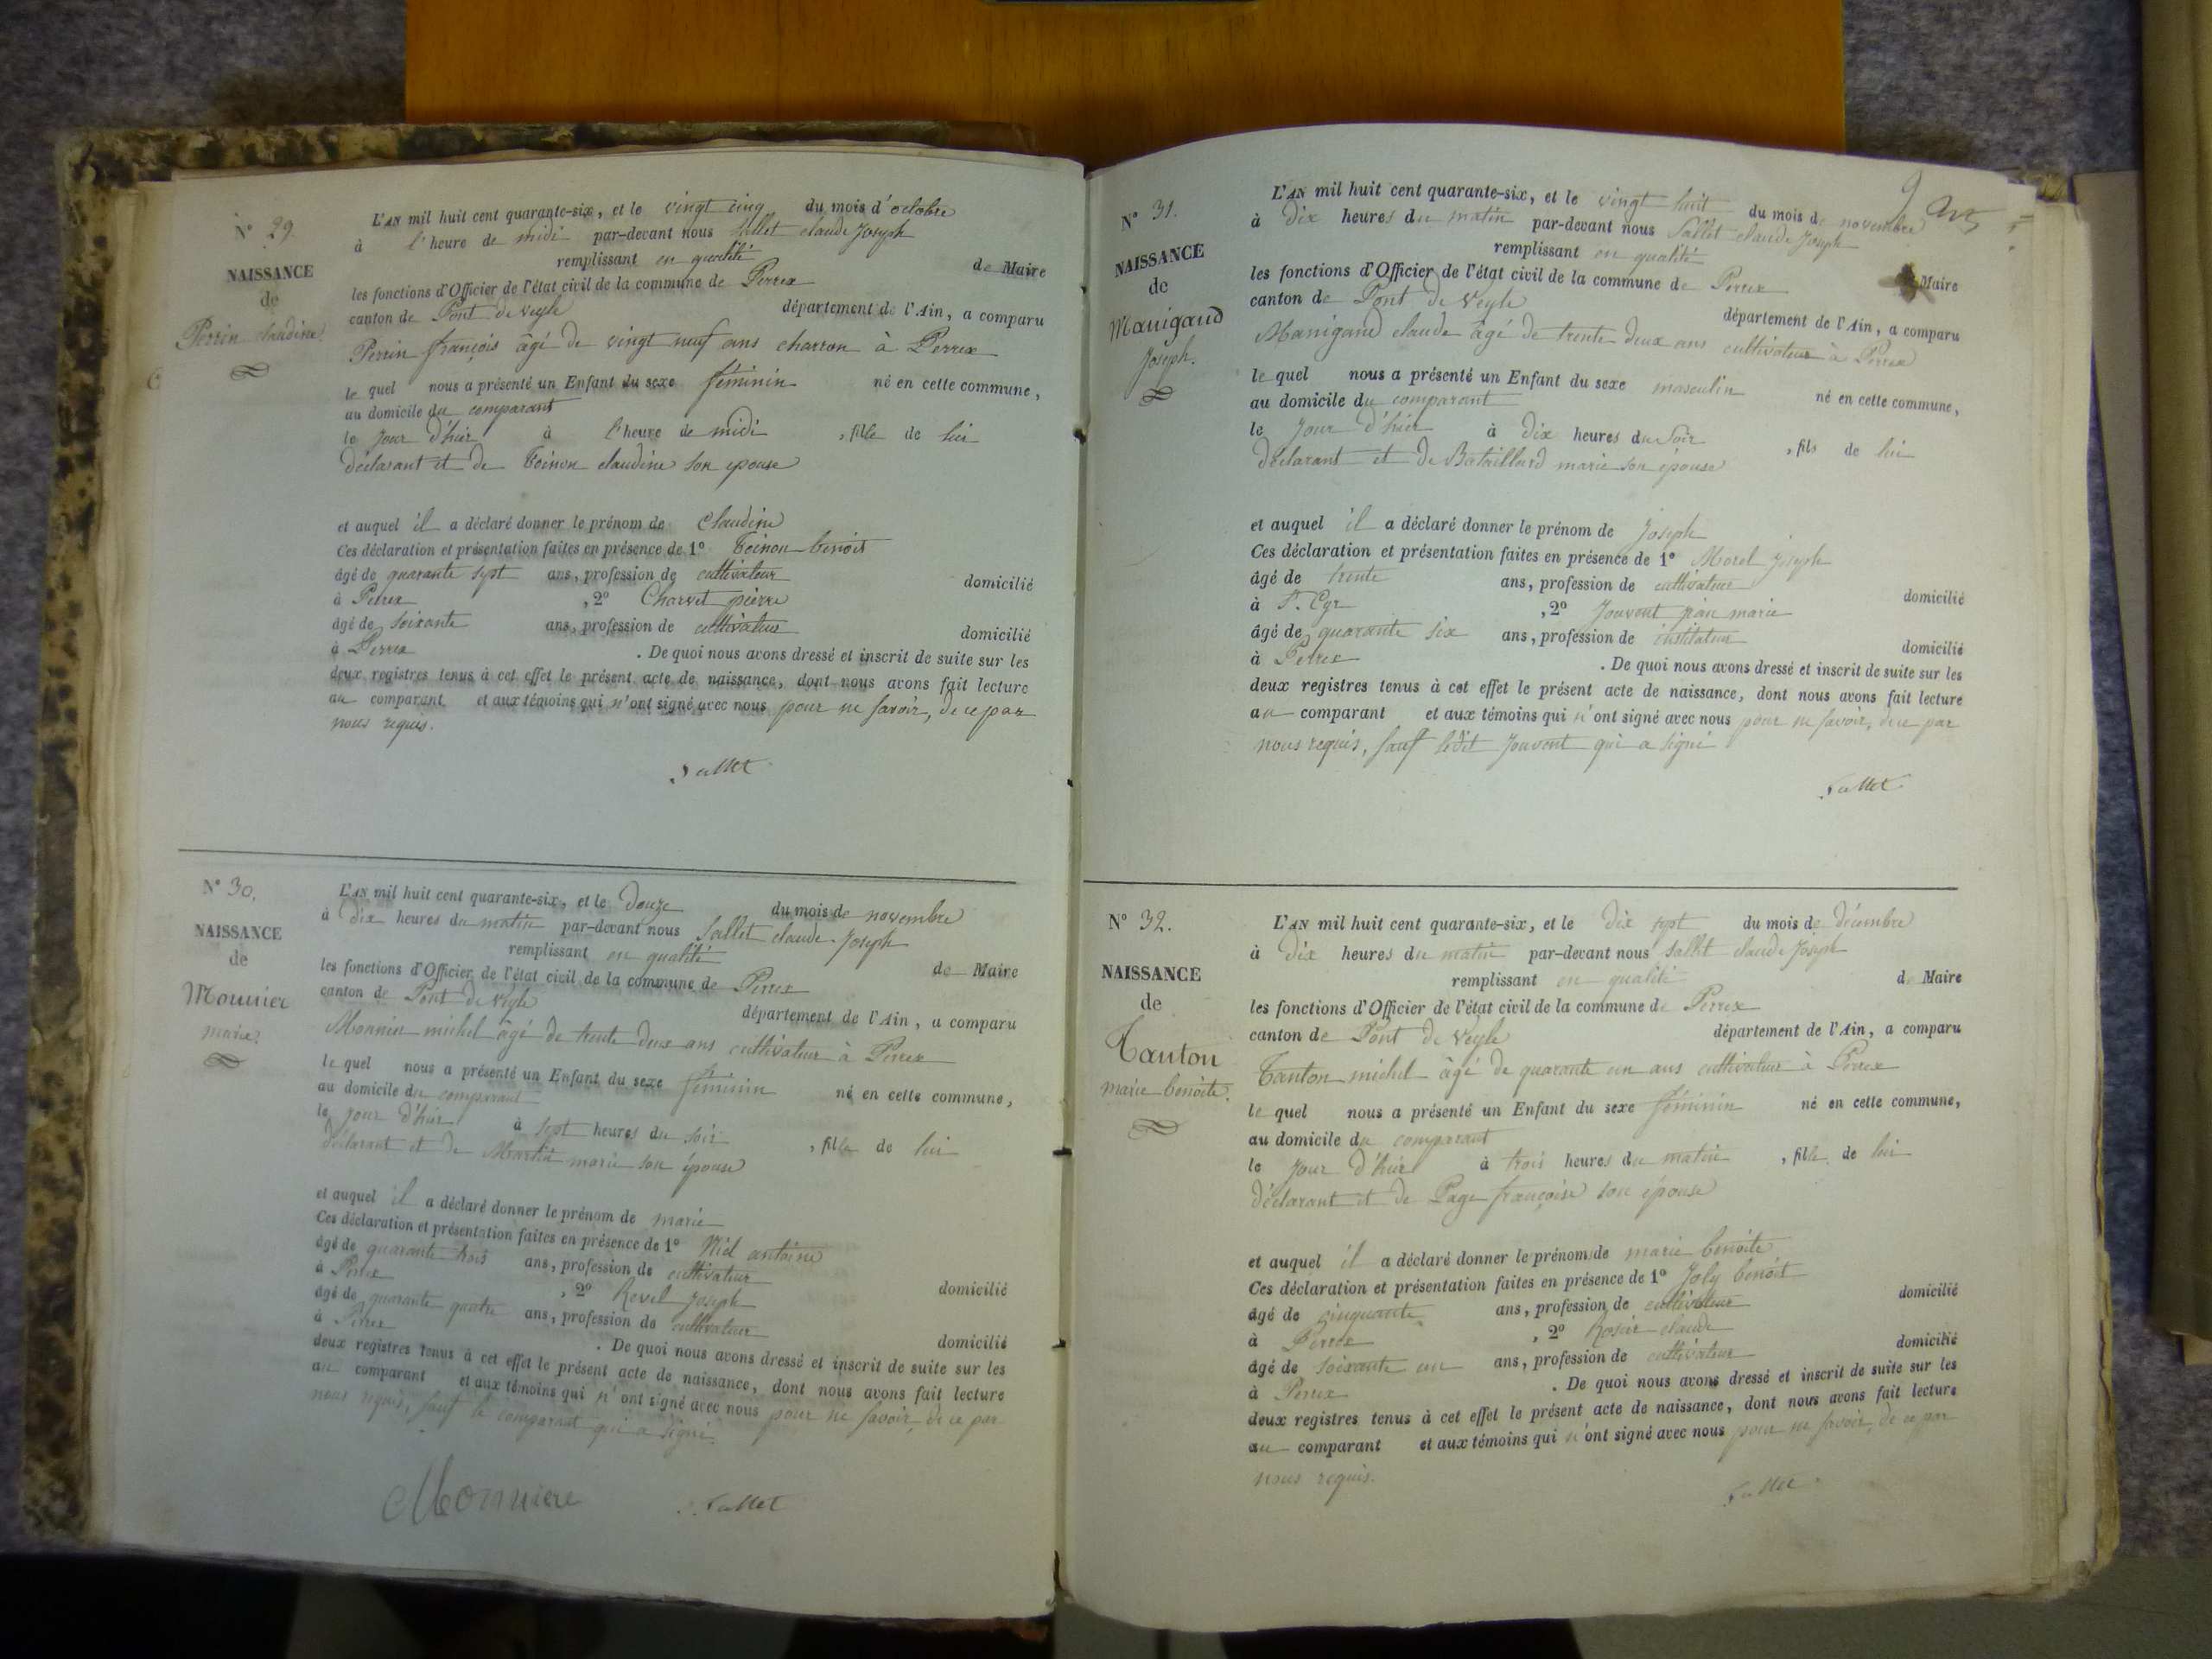 N° 29.
NAISSANCE
de
Perrin claudine.
L'AN mil huit cent quarante-six, et le vingt cinq du mois d'octobre
à l'heure de midi par-devant nous Sallet claude Joseph
remplissant en qualité de Maire
les fonctions d'Officier de l'état civil de la commune de Perrex
canton de Pont de veyle département de l'Ain, a comparu
Perrin françois âgé de vingt neuf ans charron à Perrex
le quel nous a présenté un Enfant du sexe féminin né en cette commune,
au domicile du comparant
le jour d'hier à l'heure de midi , fille de lui
déclarant et de Toinon claudine son épouse
et auquel il a déclaré donner le prénom de Claudine
Ces déclaration et présentation faites en présence de 1° Toinon benoit
âgé de quarante sept ans, profession de cultivateur domicilié
à Perrex , 2° Charvet pierre
âgé de soixante ans, profession de cultivateur domicilié
à Perrex . De quoi nous avons dressé et inscrit de suite sur les
deux registres tenus à cet effet le présent acte de naissance, dont nous avons fait lecture
au comparant et aux témoins qui n'ont signé avec nous pour ne savoir, de ce par
nous requis.
Sallet
N° 30.
NAISSANCE
de
Monnier
marie.
L'AN mil huit cent quarante-six, et le Douze du mois de novembre
à Dix heures du matin par-devant nous Sallet claude Joseph
remplissant en qualité de Maire
les fonctions d'Officier de l'état civil de la commune de Perrex
canton de Pont de veyle département de l'Ain, a comparu
Monnier michel âgé de trente deux ans cultivateur à Perrex
le quel nous a présenté un Enfant du sexe féminin né en cette commune,
au domicile du comparant
le jour d'hier à sept heures du soir , fille de lui
déclarant et de marie son épouse
et auquel il a déclaré donner le prénom de marie
Ces déclaration et présentation faites en présence de 1° Niel antoine
âgé de quarante trois ans, profession de cultivateur domicilié
à Perrex , 2° Revel Joseph
âgé de quarante quatre ans, profession de cultivateur domicilié
à Perrex . De quoi nous avons dressé et inscrit de suite sur les
deux registres tenus à cet effet le présent acte de naissance, dont nous avons fait lecture
au comparant et aux témoins qui n'ont signé avec nous pour ne savoir, de ce par
nous requis, sauf le comparant qui a signé.
Monniere Sallet
N° 31.
NAISSANCE
de
Manigand
Joseph.
L'AN mil huit cent quarante-six, et le vingt huit du mois de novembre
à Dix heures du matin par-devant nous Sallet claude Joseph
remplissant en qualité Maire
les fonctions d'Officier de l'état civil de la commune de Perrex
canton de Pont de Veyle département de l'Ain, a comparu
Manigand claude âgé de trente deux ans cultivateur à Perrex
le quel nous a présenté un Enfant du sexe masculin né en cette commune,
au domicile du comparant
le Jour d'hier à dix heures du Soir , fils de lui
déclarant et de Bataillard marie son épouse
et auquel il a déclaré donner le prénom de Joseph
Ces déclaration et présentation faites en présence de 1° Morel Joseph
âgé de trente ans, profession de cultivateur domicilié
à St. Cyr , 2° Jouvent jean marie
âgé de quarante six ans, profession de instituteur domicilié
à Perrex . De quoi nous avons dressé et inscrit de suite sur les
deux registres tenus à cet effet le présent acte de naissance, dont nous avons fait lecture
au comparant et aux témoins qui n'ont signé avec nous pour ne savoir, de ce par
nous requis, sauf ledit Jouvent qui a signé
Sallet
N° 32.
NAISSANCE
de
Tanton
marie benoite.
L'AN mil huit cent quarante-six, et le dix sept du mois de décembre
à dix heures du matin par-devant nous Sallet claude Joseph
remplissant en qualité de Maire
les fonctions d'Officier de l'état civil de la commune de Perrex
canton de Pont de Veyle département de l'Ain, a comparu
Tanton michel âgé de quarante un ans cultivateur à Perrex
le quel nous a présenté un Enfant du sexe féminin né en cette commune,
au domicile du comparant
le Jour d'hier à trois heures du matin , fille de lui
déclarant et de Page françoise son épouse
et auquel il a déclaré donner le prénom de marie benoite
Ces déclaration et présentation faites en présence de 1° Joly benoit
âgé de cinquante ans, profession de cultivateur domicilié
à Perrex , 2° claude
âgé de soixante un ans, profession de cultivateur domicilié
à Perrex . De quoi nous avons dressé et inscrit de suite sur les
deux registres tenus à cet effet le présent acte de naissance, dont nous avons fait lecture
au comparant et aux témoins qui n'ont signé avec nous pour ne savoir, de ce par
nous requis.
Sallet